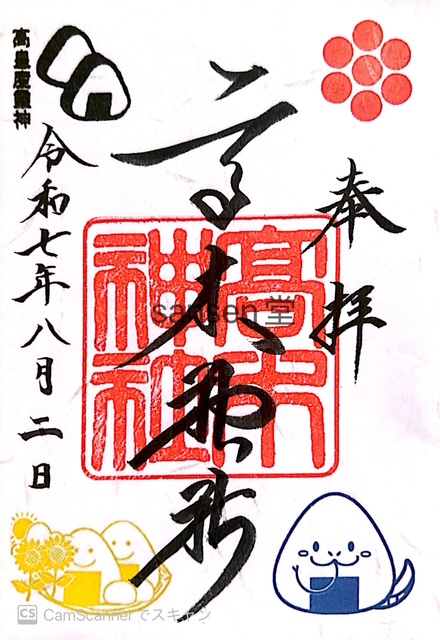 奉拝
高木神社
高木
神社
高皇産霊神
令和七年八月二日
sansen 堂
CS CamScanner でスキャン